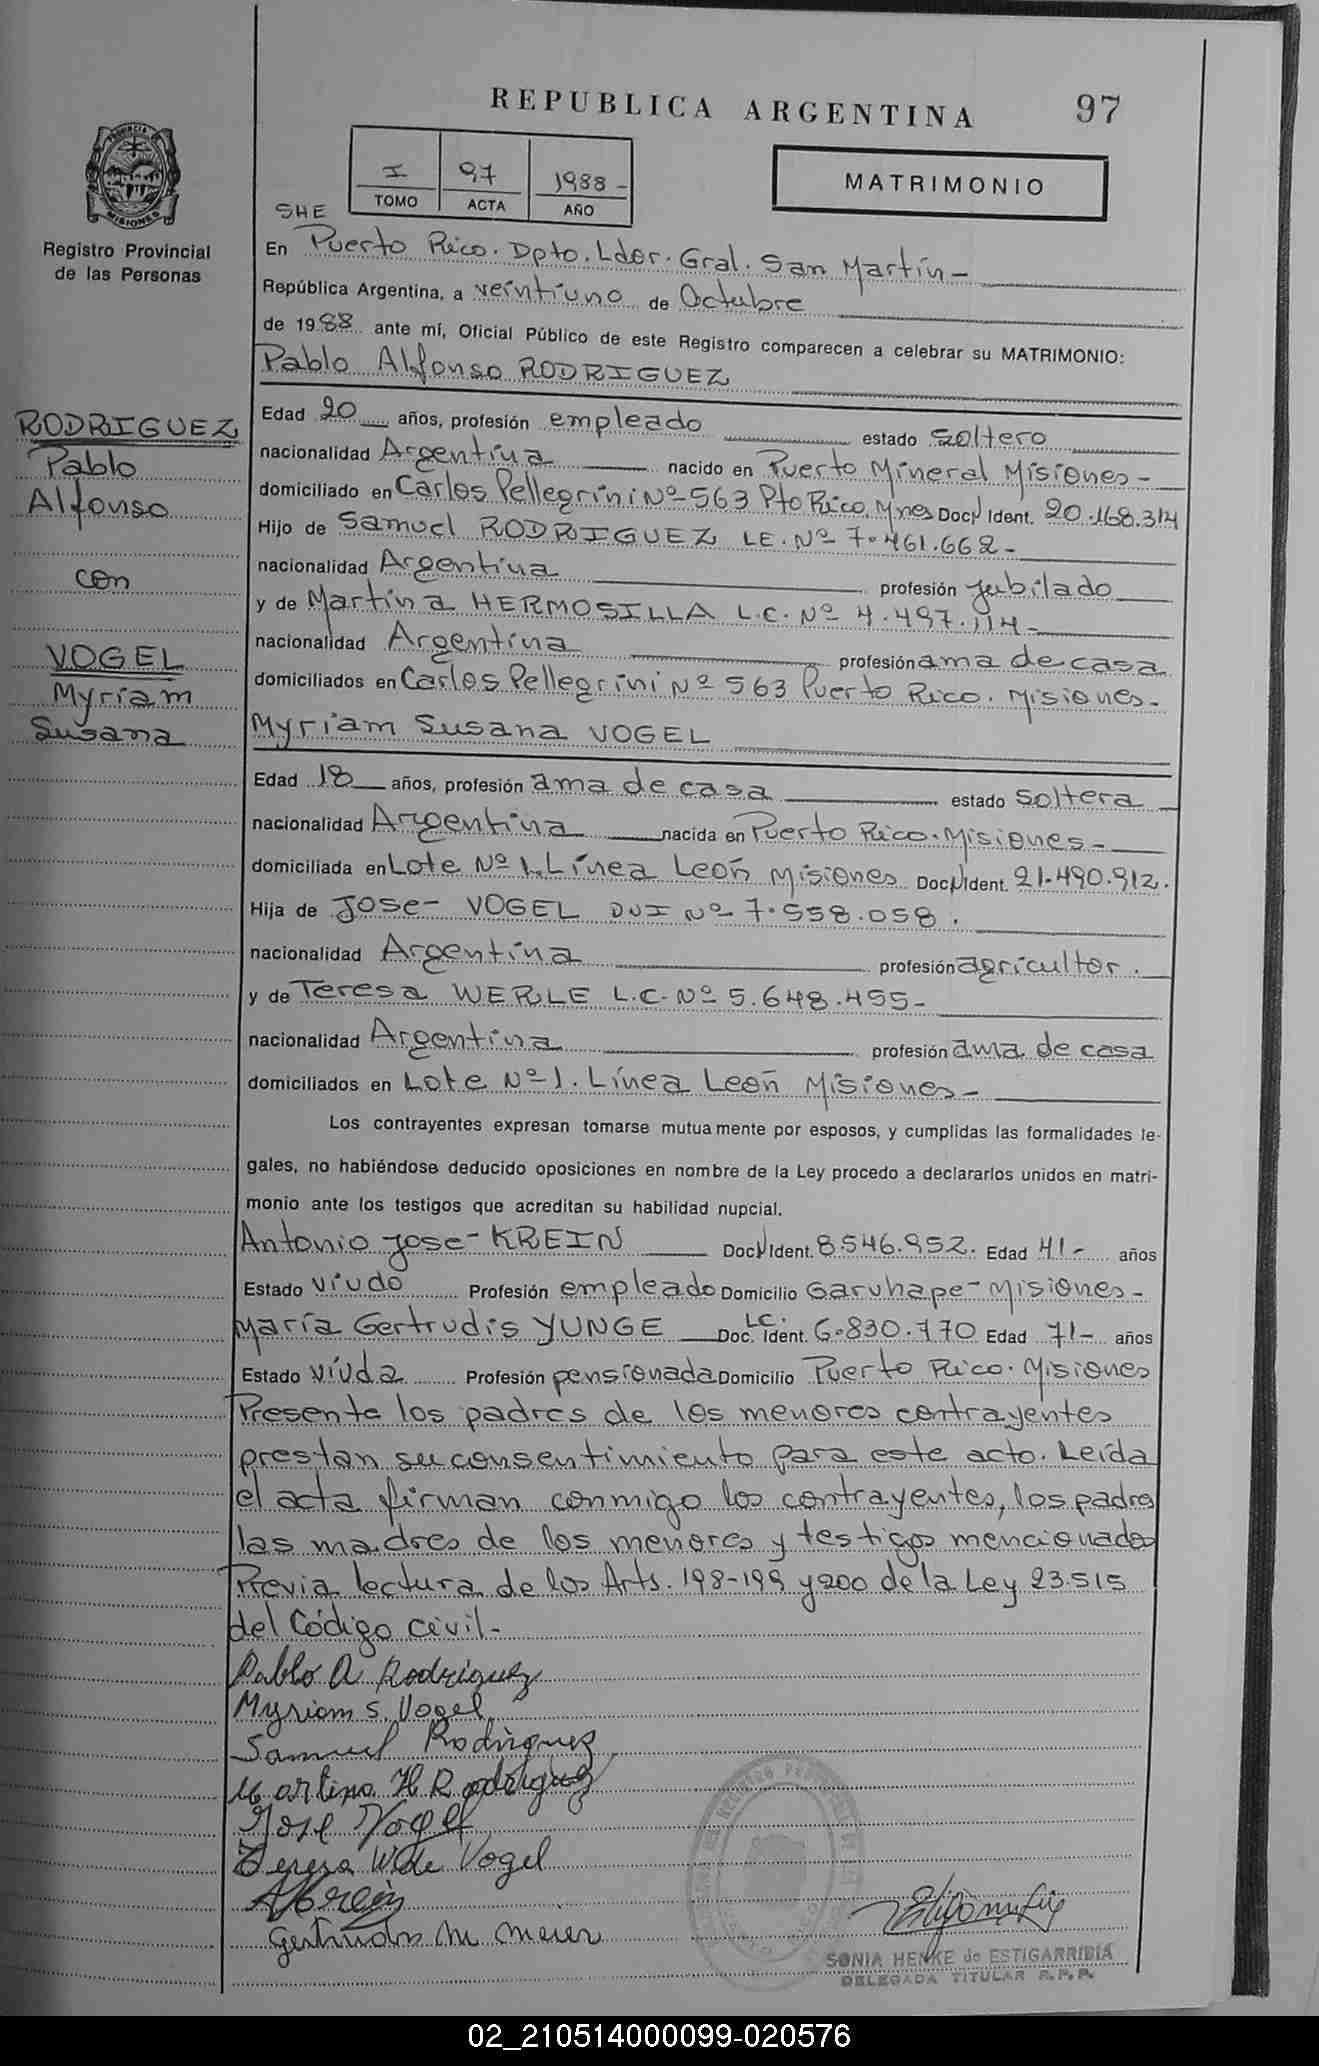 REPUBLICA ARGENTINA
97
PROVINCIA DE
MISIONES
Registro Provincial
de las Personas
I
TOMO
97
ACTA
1988 -
AÑO
MATRIMONIO
SHE
En Puerto Rico. Dpto. Ldor. Gral. San Martín -
República Argentina, a veintiuno de Octubre
de 1988 ante mí, Oficial Público de este Registro comparecen a celebrar su MATRIMONIO:
Pablo Alfonso RODRIGUEZ
Edad 20 años, profesión empleado estado soltero
nacionalidad Argentina nacido en Puerto Mineral Misiones -
domiciliado en Carlos Pellegrini Nº 563 Pto Rico, Mnes Doc. Ident. 20.168.314
Hijo de Samuel RODRIGUEZ LE. Nº 7.461.662 -
nacionalidad Argentina profesión jubilado
y de Martina HERMOSILLA L.C. Nº 4.497.114 -
nacionalidad Argentina profesión ama de casa
domiciliados en Carlos Pellegrini Nº 563 Puerto Rico. Misiones -
RODRIGUEZ
Pablo
Alfonso
con
VOGEL
Myriam
Susana
Myriam Susana VOGEL
Edad 18 años, profesión ama de casa estado soltera
nacionalidad Argentina nacida en Puerto Rico. Misiones -
domiciliada en Lote Nº 1. Línea León Misiones Doc. Ident. 21.490.912.
Hija de Jose- VOGEL DNI Nº 7.558.058.
nacionalidad Argentina profesión agricultor.
y de Teresa WERLE L.C. Nº 5.648.455 -
nacionalidad Argentina profesión ama de casa
domiciliados en Lote Nº 1. Línea León Misiones -
Los contrayentes expresan tomarse mutuamente por esposos, y cumplidas las formalidades le-
gales, no habiéndose deducido oposiciones en nombre de la Ley procedo a declararlos unidos en matri-
monio ante los testigos que acreditan su habilidad nupcial.
Antonio Jose- KREIN Doc. Ident. 8.546.952. Edad 41 - años
Estado viudo Profesión empleado Domicilio Garuhape - Misiones -
LC.
María Gertrudis YUNGE Doc. Ident. 6.830.770 Edad 71 - años
Estado viuda Profesión pensionada Domicilio Puerto Rico. Misiones
Presente los padres de los menores contrayentes
prestan su consentimiento para este acto. Leída
el acta firman conmigo los contrayentes, los padres
las madres de los menores y testigos mencionados
Previa lectura de los Arts. 198-199 y 200 de la Ley 23.515
del Código civil -
Pablo A Rodriguez
Myriam S. Vogel
Samuel Rodriguez
Martina H R odriguez
Jose Vogel
Teresa W de Vogel
AKrein
Gertrudis M Meier
SONIA HENKE de ESTIGARRIBIA
DELEGADA TITULAR R.P.P.
02_210514000099-020576